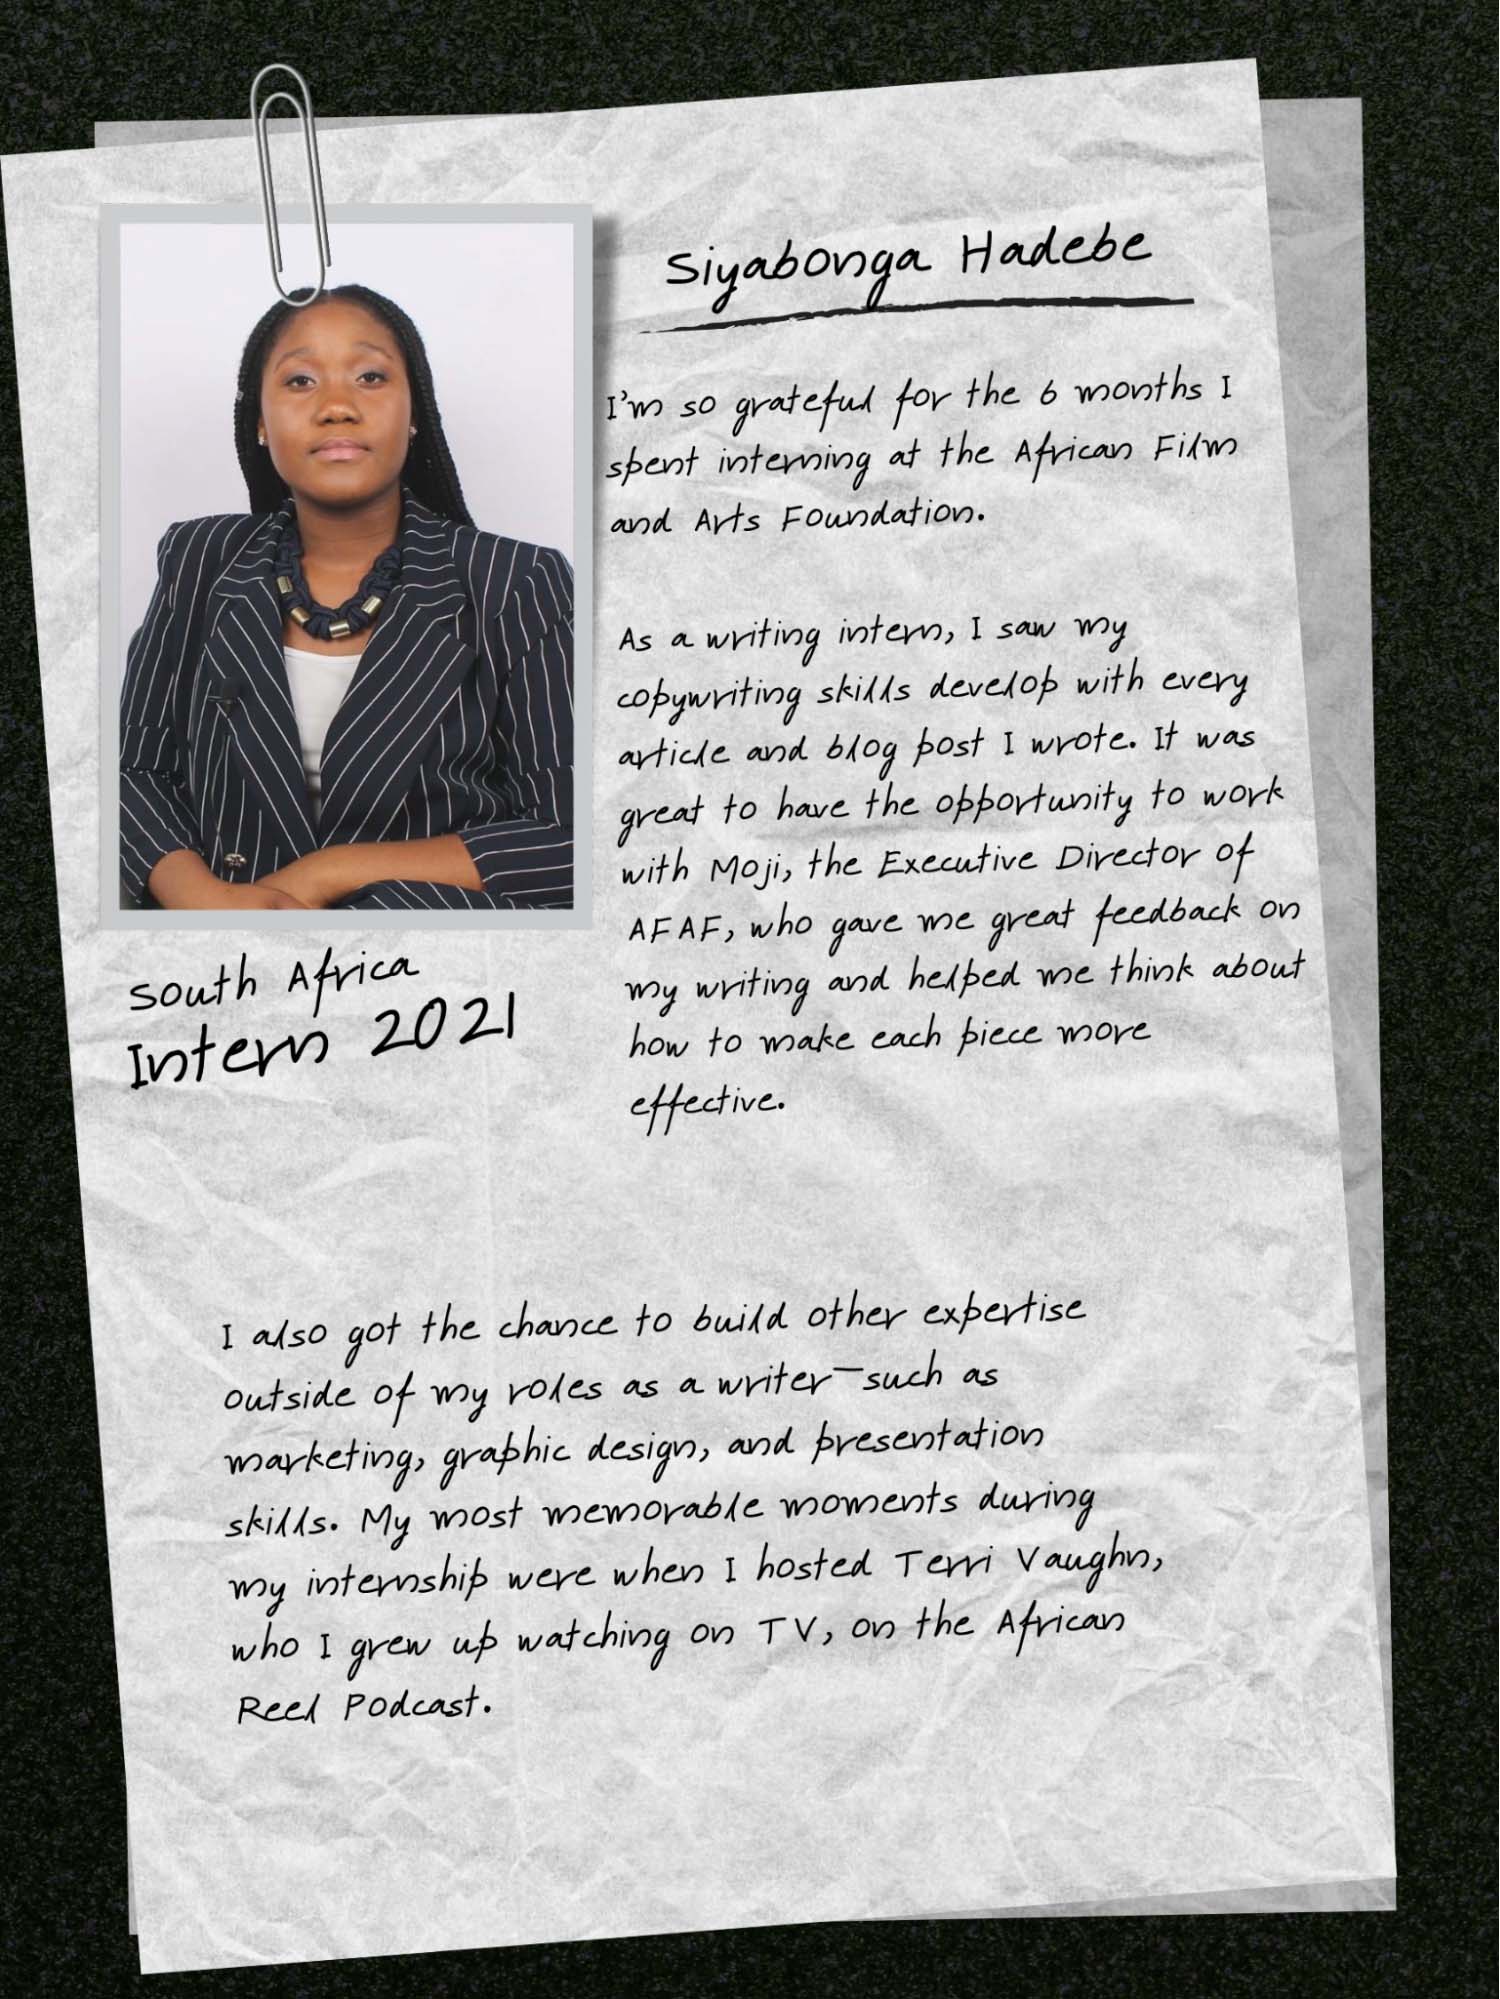 Siyabonga Hadebe
I'm so grateful for the 6 months I
spent interning at the African Film
and Arts Foundation.
As a writing intern, I saw my
copywriting skills develop with every
article and blog post I wrote. It was
great to have the opportunity to work
with Moji, the Executive Director of
AFAF, who gave me great feedback on
my writing and helped me think about
how to make each piece more
effective.
South Africa
Intern 2021
I also got the chance to build other expertise
outside of my roles as a writer—such as
marketing, graphic design, and presentation
skills. My most memorable moments during
my internship were when I hosted Terri Vaughn,
who I grew up watching on TV, on the African
Reel Podcast.